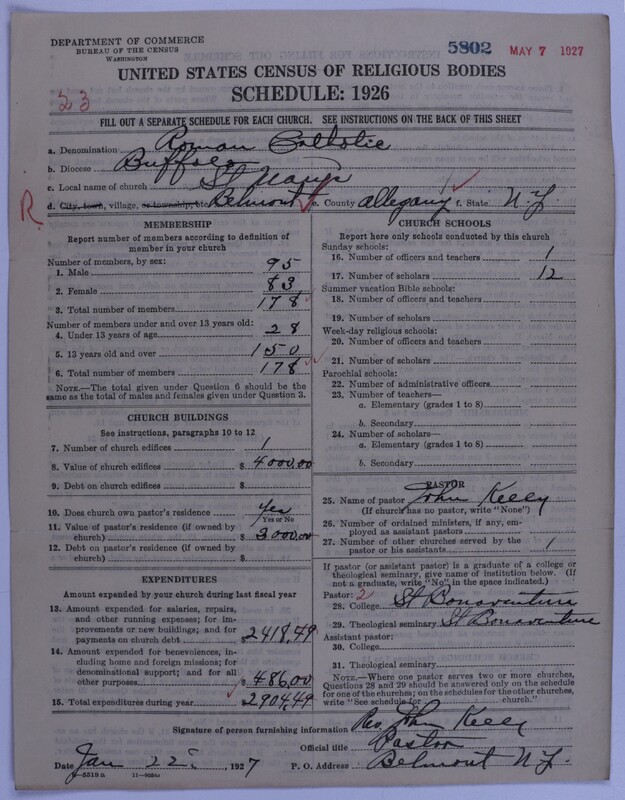 DEPARTMENT OF COMMERCE
BUREAU OF THE CENSUS
WASHINGTON
5802 MAY 7 1927
UNITED STATES CENSUS OF RELIGIOUS BODIES
SCHEDULE: 1926
23
FILL OUT A SEPARATE SCHEDULE FOR EACH CHURCH. SEE INSTRUCTIONS ON THE BACK OF THIS SHEET
a. Denomination Roman Catholic
b. Diocese Buffalo
c. Local name of church St Marys
R
d. City, town, village, or township, etc. Belmont e. County Allegany f. State N.Y.
MEMBERSHIP
Report number of members according to definition of
member in your church
Number of members, by sex:
1. Male 95
2. Female 83
3. Total number of members 178
Number of members under and over 13 years old:
4. Under 13 years of age 28
5. 13 years old and over 150
6. Total number of members 178
NOTE.—The total given under Question 6 should be the
same as the total of males and females given under Question 3.
CHURCH BUILDINGS
See instructions, paragraphs 10 to 12
7. Number of church edifices 1
8. Value of church edifices $ 4000,00
9. Debt on church edifices $
10. Does church own pastor's residence Yes
Yes or No
11. Value of pastor's residence (if owned by
church) $ 3,000,00
12. Debt on pastor's residence (if owned by
church) $
EXPENDITURES
Amount expended by your church during last fiscal year
13. Amount expended for salaries, repairs,
and other running expenses; for im-
provements or new buildings; and for
payments on church debt $ 2418,49
14. Amount expended for benevolences, in-
cluding home and foreign missions; for
denominational support; and for all
other purposes $ 486,00
15. Total expenditures during year $ 2904,49
CHURCH SCHOOLS
Report here only schools conducted by this church
Sunday schools:
16. Number of officers and teachers 1
17. Number of scholars 12
Summer vacation Bible schools:
18. Number of officers and teachers
19. Number of scholars
Week-day religious schools:
20. Number of officers and teachers
21. Number of scholars
Parochial schools:
22. Number of administrative officers
23. Number of teachers—
a. Elementary (grades 1 to 8)
b. Secondary
24. Number of scholars—
a. Elementary (grades 1 to 8)
b. Secondary
PASTOR
25. Name of pastor John Kelly
(If church has no pastor, write "None")
26. Number of ordained ministers, if any, em-
ployed as assistant pastors
27. Number of other churches served by the
pastor or his assistants 1
If pastor (or assistant pastor) is a graduate of a college or
theological seminary, give name of institution below. (If
not a graduate, write "No" in the space indicated.)
Pastor: 2
28. College St Bonaventure
29. Theological seminary St Bonaventure
Assistant pastor:
30. College
31. Theological seminary
NOTE.—Where one pastor serves two or more churches,
Questions 28 and 29 should be answered only on the schedule
for one of the churches; on the schedules for the other churches,
write "See schedule for church."
Signature of person furnishing information Rev John Kelly
Official title Pastor
Date Jan 22, 1927 P. O. Address Belmont N.Y.